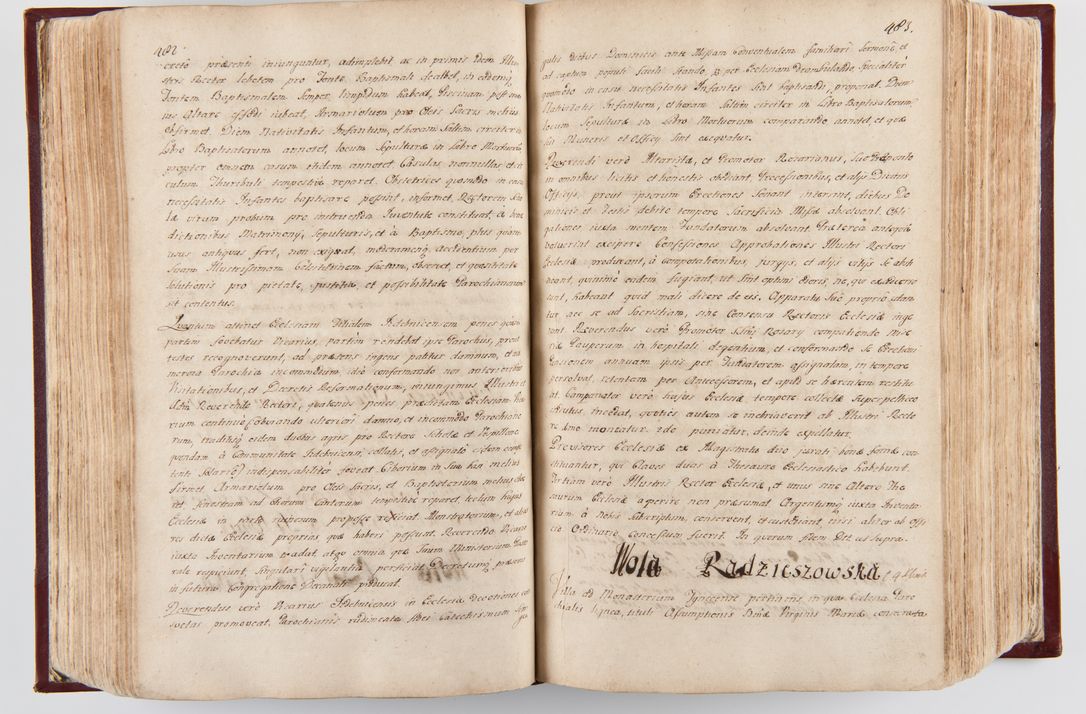 482.
creto præsenti iniunguntur, adimplebit ac in primis idem Illu-
stris Rector lebetem pro Fonte Baptismali dealbet, in eodemq
Fontem Baptismalem semper limpidum habeat, Piscinam post ma-
ius Altare effodi iubeat, Armariolum pro Oleis Sacris melius
obfirmet. Diem Nativitatis Infantium, et horam saltem circiter in
Libro Baptisatorum annotet, locum Sepulturæ in Libro Mortuorū
propter omnem casum itidem annotet, Casulas nonnullas, et
culum Thuribuli tempestive reparet. Obstetrices quomodo in casu
necessitatis Infantes baptisare possint, informet, Rectorem Scho-
læ virum probum pro instruenda Iuventute constituat, a bene-
dictionibus Matrimonij, Sepulturis, et a Baptismo, plus quam
usus antiquus fert, non exigeat, moderamenq accidentium per
suam Illustrissimam Celsitudinem factum, observet, et quantitate
solutionis pro pietate, iustitia, et possibilitate Parochianorum
sit contentus.
Quantum attinet Ecclesiam filialem Sidzinensem penes quam
partim solebatur Vicarius, partim rendebit ipse Parochus, prout
testes recognoverunt, ad præsens ingens patitur damnum, et nu-
merosa Parochia incommodum, ideo conformando nos anterioribus
Visitationibus, et Decretis Reformationum, iniungimus Illustri et
Adm Reverendo Rectori, quatenus penes prædictam Ecclesiam Vica-
rium continuo (obviando ulteriori damno, et incommodo Parochiano-
rum, traditisq eidem duobus agris pro Rectore Scholæ et
quondam a Communitate collatis, et assignato eidem compe-
tenti Salario) indispensabiliter foveat Ciborium in sua basi melius
firmet Armariolum pro Oleis Sacris, et Baptisterium melius
ret, fenestram ad chorum Cantorum tempestive reparet, tectum hujus
Ecclesiæ in parte ruinosum propere reficiat. Monstratorium, et alias
res dictæ Ecclesiæ proprias quæ haberi possunt Reverendo Vicario
iuxta Inventarium tradat, atqe omnia quæ suum Ministerium Pasto-
rale respiciunt, singulari vigilantia perficiat, Decretumq præsens
in futura Congregatione Decanali producat.
Reverendus vero Vicarius in Ecclesia devotiones con-
suetas promoveat, Parochianis rudimenta fidei Catechismum sin-
gu-
483.
gulis diebus Dominicis ante Missam conventualem familiari Sermone, et
ad captum populi facili stando, et per Ecclesiam deambulando, specialiter
quomodo in casu necessitatis Infantes sint baptisandi, proponat. Diem
Nativitatis Infantium, et horam saltim circiter in Libro Baptisatorum,
locum Sepulturæ in Libro Mortuorum comparando annotet, et quæ
sui Muneris et Officij sint exequatur.
Reverendi vero Altarista, et Promotor Rosarianus, suo Præposito
in omnibus licitis et honestis obediant, Processionibus, et alijs Divinis
Officijs, prout ipsorum Erectiones sonant intersint, diebus Do-
minicis et Festis debito tempore Sacrificia Missæ absolvant. Obli-
gationes iuxta mentem Fundatorum absolvant. Præterea antequam
voluerint excipere Confessiones, Approbationes Illustri Rectori
Ecclesiæ producant, a compotationibus, jurgijs, et alijs vitijs se absti-
neant, quinimo eadem fugiant, ut sint optimi odoris, ne, qui ex adverso
sunt, habeant quid mali dicere de eis. Apparatu suo proprio utan-
tur, aec se ad Sacristiam, sine Consensu Rectoris Ecclesiæ inge-
rant. Reverendus vero Promotor SSmi Rosarij compatiendo mise-
riæ Pauperum in hospitali degentium, et conformando se Erectioni
Pensionem annuam ipsis per Fundatorem assignatam, in tempore
persolvat, retentam per Antecessorem, et apud se hærentem restitu-
at. Campanator vero hujus Ecclesiæ tempore collectæ superpelliceo
indutus incedat, quoties autem se inebriaverit ab Illustri Recto-
re 1mo moneatur, 2do puniatur, deinde expellatur.
Provisores Ecclesiæ ex Magistratu duo jurati bonæ famæ con-
stituantur, qui Claves duas a Thesauro Ecclesiastico habebunt.
Tertiam vero Illustris Rector Ecclesiæ, et unus sine Altero The-
saurum Ecclesiæ aperire non præsumat. Argentumq iuxta Inventa-
rium a Nobis subscriptum, conservent, et custodiant, nisi aliter ab Offi-
cio Ordinario concessum fuerit. In quorum fidem Datt. ut supra.
Wola Radzieszowska
Villa ad Monasterium Tynecense pertinens, in qua Ecclesia Paro-
chialis lignea, tituli Assumptionis Bmæ Virginis Mariæ consecrata